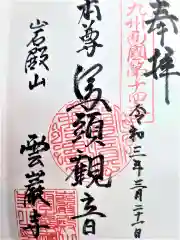 奉拝
令和三年三月二十一日
九州西国第十四
本尊
馬頭観音
岩殿山
雲巌寺